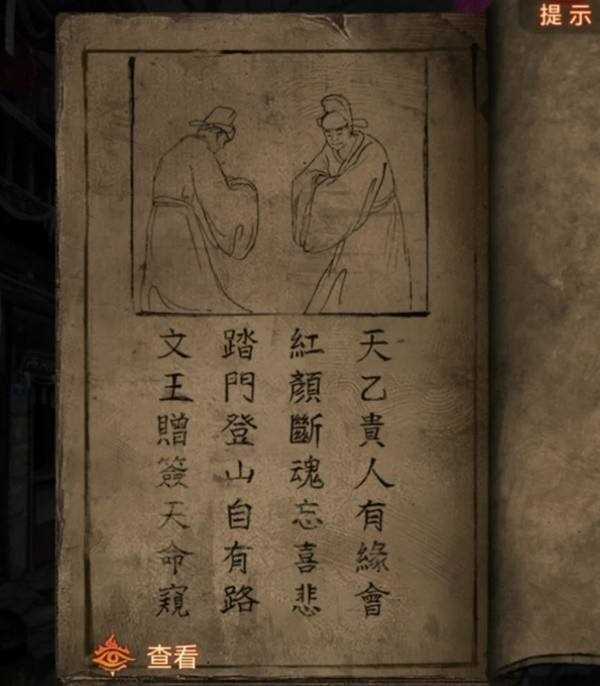 提示
天乙貴人有緣會
紅顏斷魂忘喜悲
踏門登山自有路
文王贈簽天命窺
查看